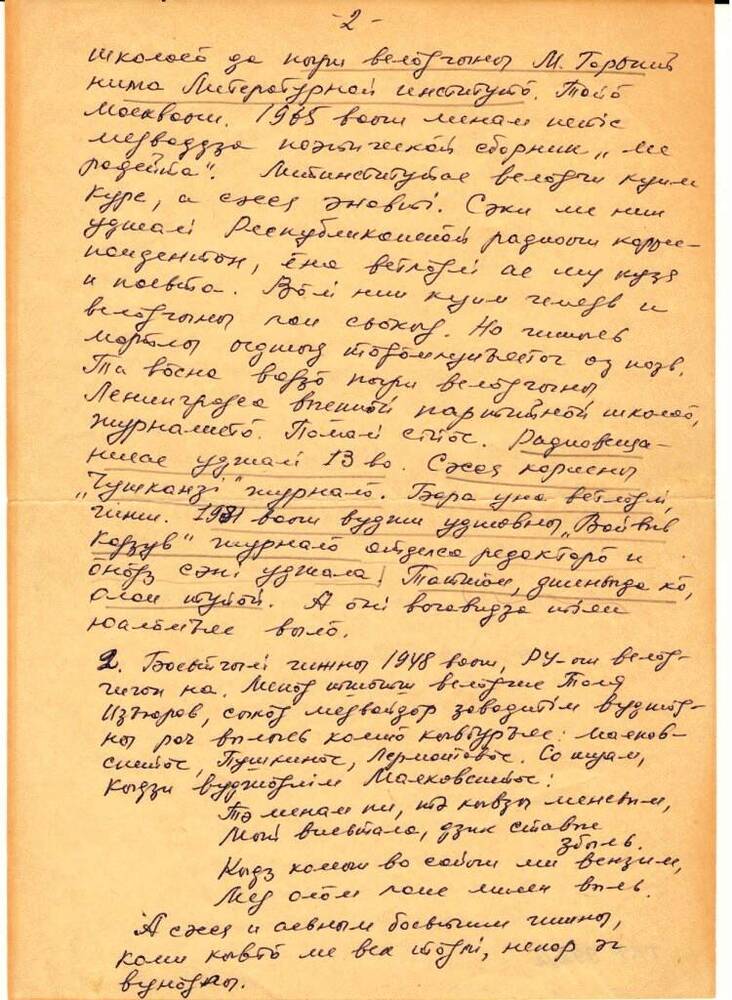 - 2 -
школасӧ да пыри велӧдчыны М. Горький
нима Литературнӧй институтӧ. Тайӧ
Москваын. 1965 воын менам петіс
медводдза поэтическӧй сборник „Ме
радейта“. Литинститутас велӧдчи куим
курс, а сэсся эновті. Сэки ме нин
уджалі Республиканскӧй радиоын корре-
пондентӧн, ёна ветлӧдлі ас му кузя
и паськыда. Вӧлі нин куим челядь и
велӧдчыны лои сьӧкыд. Но гижысь
мортлы водзӧ тӧдӧмлунъястӧг оз позь.
Та вӧсна водзӧ пыри велӧдчыны
Ленинградса высшӧй партийнӧй школаӧ,
журналистӧ. Помалі сійӧс. Радиовеща-
ниеас уджалі 13 во. Сэсся корисны
„Чушканзі“ журналӧ. Бара уна ветлӧдлі,
гижи. 1981 воын вуджи уджавны „Войвыв
кодзув“ журналӧ отделса редакторӧ и
ӧнӧдз сэні уджала. Татшӧм, дженьыда кӧ,
олан туйӧй. А ӧні вочавидза тіян
юалӧмъяс вылӧ.
2. Босьтчылі гижны 1948 воын, РУ-ын велӧд-
чигӧн на. Мекӧд тшӧтш велӧдчис Толя
Изъюров, сыкӧд медвойдӧр заводитім вуджӧд-
ны роч вылысь комиӧ кывбуръяс: Маяков-
скийӧс, Пушкинӧс, Лермонтовӧс. Со тшӧтш,
кыдзи вуджӧдлім Маяковскийӧс:
Тэ менам пи, тэ кывзы менсьым,
Мый висьтала, дзик ставыс
збыль.
Кыдз комын во сайын ми вензим,
Мед олӧм лоис миян выль.
А сэсся и асьным босьтчим гижны,
коми кывтӧ ме век тӧдлі, некор эг
вунӧдлы.